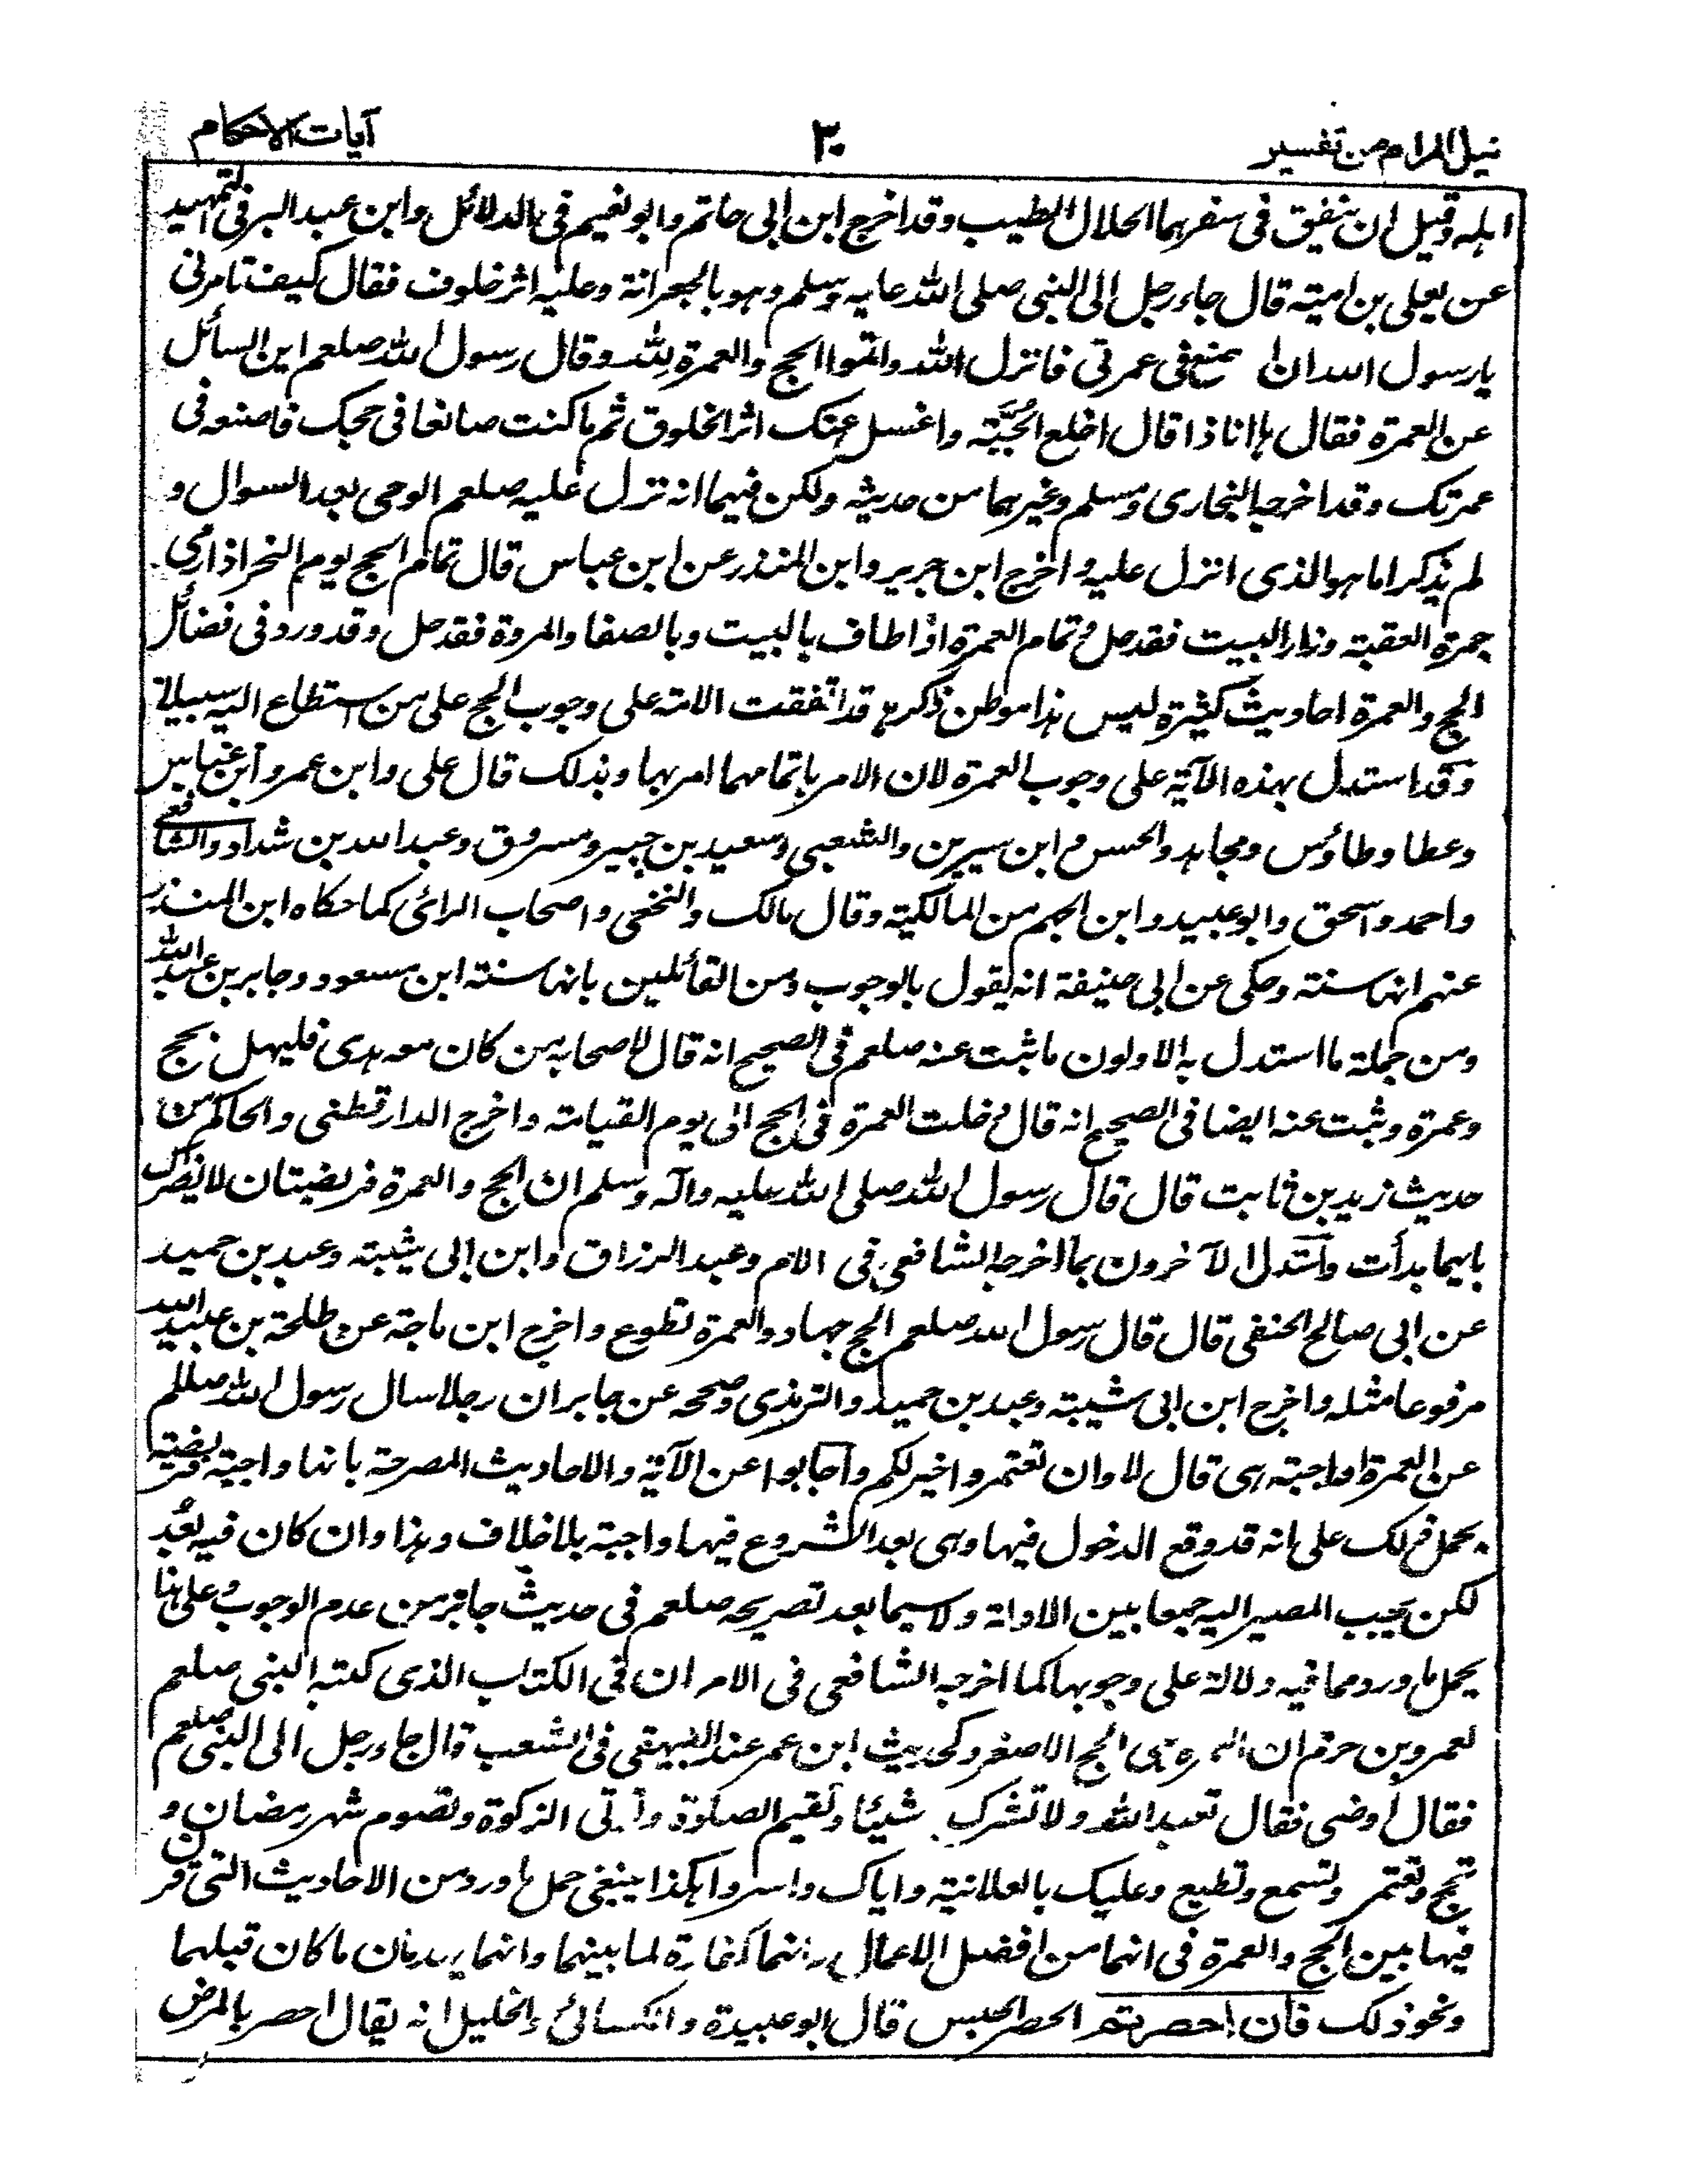 نيل المرام من تفسير
٣٠
آيات الاحكام
اهله وقيل ان ينفق في سفرهما الحلال الطيب وقد اخرج ابن ابي حاتم وابو نعيم في الدلائل وابن عبد البر في التمهيد
عن يعلى بن امية قال جاء رجل الى النبي صلى الله عليه وسلم وهو بالجعرانة وعليه اثر خلوف فقال كيف تامرني
يا رسول الله ان اصنع في عمرتي فانزل الله واتموا الحج والعمرة لله وقال رسول الله صلعم اين السائل
عن العمرة فقال ها انا ذا قال اخلع الجبة واغسل عنك اثر الخلوق ثم ما كنت صانعا في حجك فاصنعه في
عمرتك وقد اخرجه البخاري ومسلم وغيرهما من حديثه ولكن فيهما انه نزل عليه صلعم الوحي بعد السوال و
لم يذكر اما هو الذي انزل عليه و اخرج ابن جرير وابن المنذر عن ابن عباس قال تمام الحج يوم النحر اذا رمى
جمرة العقبة وزار البيت فقد حل وتمام العمرة اذا طاف بالبيت وبالصفا والمروة فقد حل وقد ورد في فضائل
الحج والعمرة احاديث كثيرة ليس هذا موطن ذكرها قد اتفقت الامة على وجوب الحج على من استطاع اليه سبيلا
وقد استدل بهذه الآية على وجوب العمرة لان الامر باتمامهما امر بها وبذلك قال علي وابن عمر وابن عباس
وعطا وطاؤس ومجاهد والحسن و ابن سيرين والشعبي وسعيد بن جبير ومسروق وعبد الله بن شداد والشافعي
واحمد واسحق وابو عبيد وابن الجهم من المالكية وقال مالك والنخعي واصحاب الرائي كما حكاه ابن المنذر
عنهم انها سنة وحكي عن ابي حنيفة انه يقول بالوجوب ومن القائلين بانها سنة ابن مسعود وجابر بن عبد الله
ومن جملة ما استدل به الاولون ما ثبت عنه صلعم في الصحيح انه قال لاصحابه من كان معه هدي فليهل بحج
وعمرة وثبت عنه ايضا في الصحيح انه قال دخلت العمرة في الحج الى يوم القيامة واخرج الدارقطني والحاكم من
حديث زيد بن ثابت قال قال رسول الله صلى الله عليه وآله وسلم ان الحج والعمرة فريضتان لا يضرك
بايهما بدأت واستدل الآخرون بما اخرجه الشافعي في الام وعبد الرزاق وابن ابي شيبة وعبد بن حميد
عن ابي صالح الحنفي قال قال رسول الله صلعم الحج جهاد والعمرة تطوع واخرج ابن ماجة عن طلحة بن عبيد الله
مرفوعا مثله واخرج ابن ابي شيبة وعبد بن حميد والترمذي وصححه عن جابر ان رجلا سال رسول الله صللم
عن العمرة اواجبة هي قال لا وان تعتمروا خير لكم واجابوا عن الآية والاحاديث المصرحة بانها واجبة فريضة
بحمل ذلك على انه قد وقع الدخول فيها وهي بعد الشروع فيها واجبة بلا خلاف وهذا وان كان فيه بعد
لكن يجب المصير اليه جمعا بين الادلة ولا سيما بعد تصريحه صلعم في حديث جابر من عدم الوجوب وعلى هذا
يحمل ما ورد مما فيه دلالة على وجوبها كما اخرجه الشافعي في الام ان في الكتاب الذي كتبه النبي صلعم
لعمرو بن حزم ان العمرة هي الحج الاصغر وكحديث ابن عمر عند البيهقي في الشعب قال جاء رجل الى النبي صلعم
فقال اوصني فقال تعبد الله ولا تشرك شيئا وتقيم الصلوة وتؤتي الزكوة وتصوم شهر رمضان و
تحج وتعتمر وتسمع وتطيع وعليك بالعلانية واياك والسر وهكذا ينبغي حمل ما ورد من الاحاديث التي قرن
فيها بين الحج والعمرة في انهما من افضل الاعمال وانهما كفارة لما بينهما وانهما يهدمان ما كان قبلهما
ونحو ذلك فان احصرتم الحصر الحبس قال ابو عبيدة والكسائي والخليل انه يقال احصر بالمرض